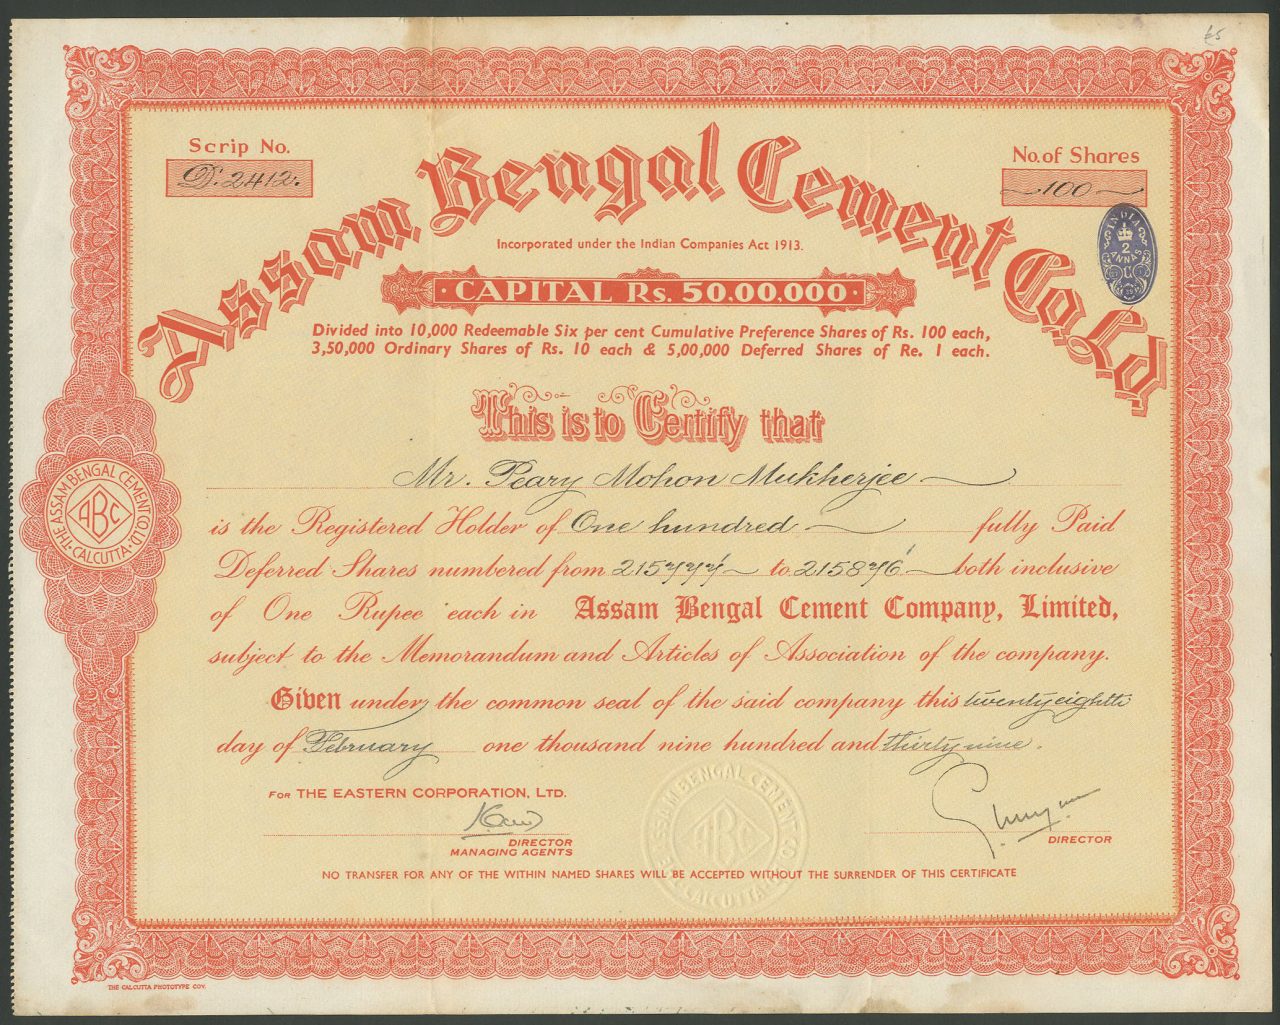 £5
Scrip No.
D. 2412.
No. of Shares
100
Assam Bengal Cement Co. Ld.
INDIA
2
ANNAS
C
Incorporated under the Indian Companies Act 1913.
· CAPITAL Rs. 50,00,000 ·
Divided into 10,000 Redeemable Six per cent Cumulative Preference Shares of Rs. 100 each,
3,50,000 Ordinary Shares of Rs. 10 each & 5,00,000 Deferred Shares of Re. 1 each.
This is to Certify that
Mr. Peary Mohon Mukherjee
THE ASSAM BENGAL CEMENT CO. LD.
ABC
· CALCUTTA ·
is the Registered Holder of One hundred fully Paid
Deferred Shares numbered from 215777 to 215876 both inclusive
of One Rupee each in Assam Bengal Cement Company, Limited,
subject to the Memorandum and Articles of Association of the company.
Given under the common seal of the said company this twenty eighth
day of February one thousand nine hundred and thirty nine.
FOR THE EASTERN CORPORATION, LTD.
DIRECTOR
MANAGING AGENTS
ASSAM BENGAL CEMENT CO.
ABC
CALCUTTA
DIRECTOR
NO TRANSFER FOR ANY OF THE WITHIN NAMED SHARES WILL BE ACCEPTED WITHOUT THE SURRENDER OF THIS CERTIFICATE
THE CALCUTTA PHOTOTYPE COY.